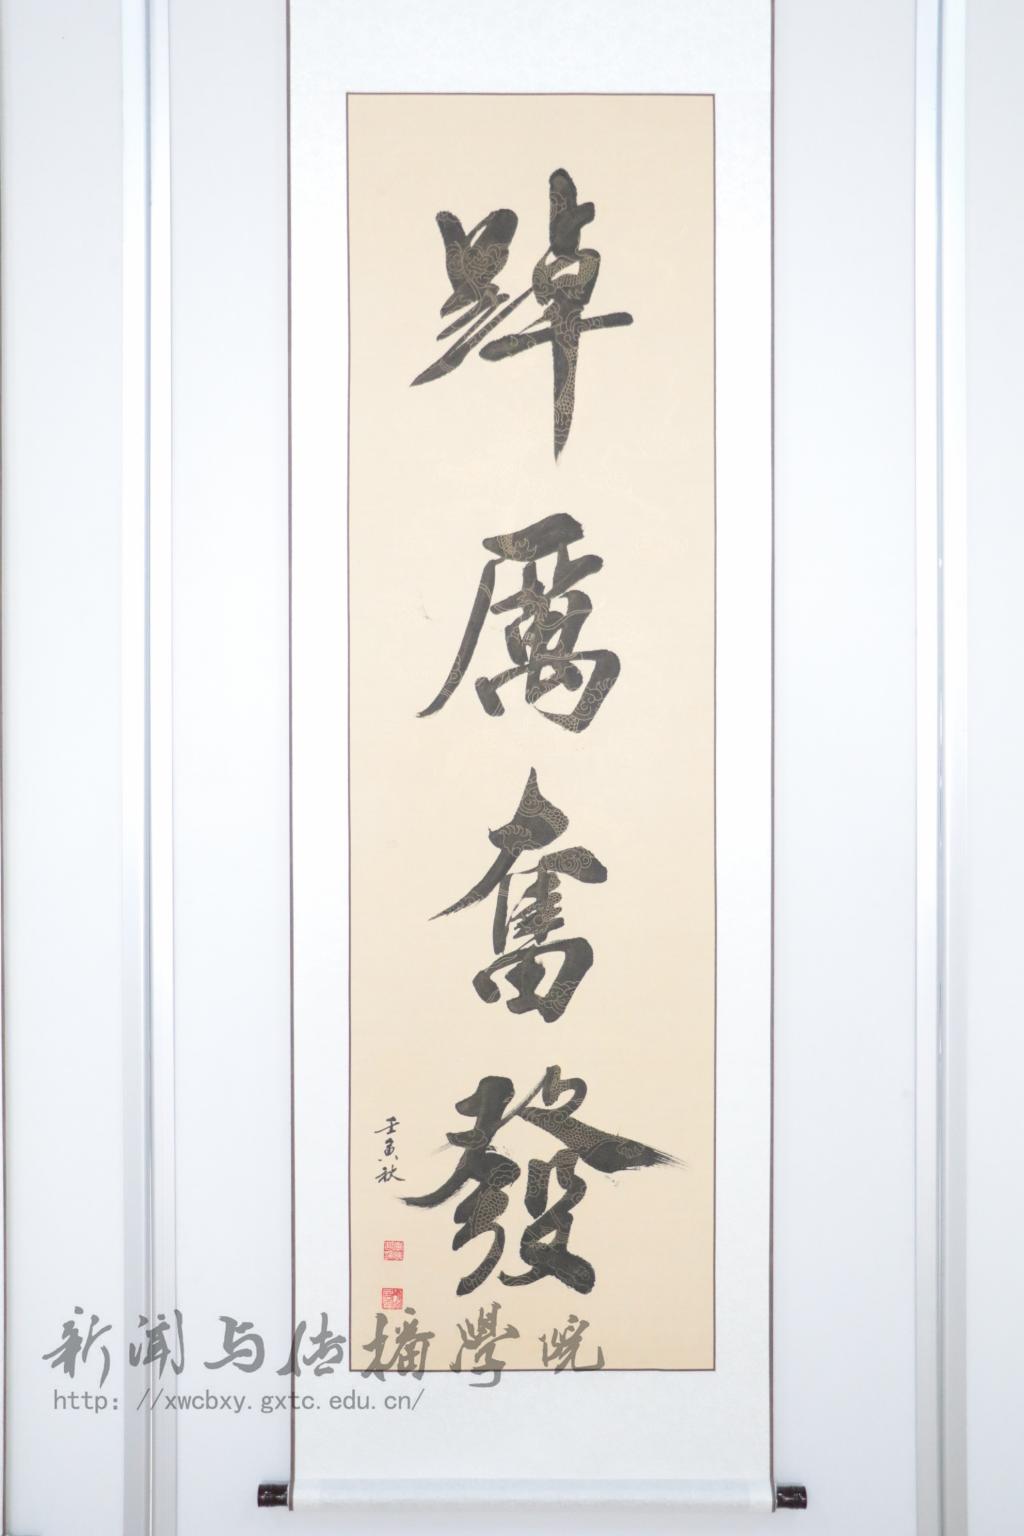 踔厲奮發
壬寅秋
新闻与传播学院
http: //xwcbxy.gxtc.edu.cn/